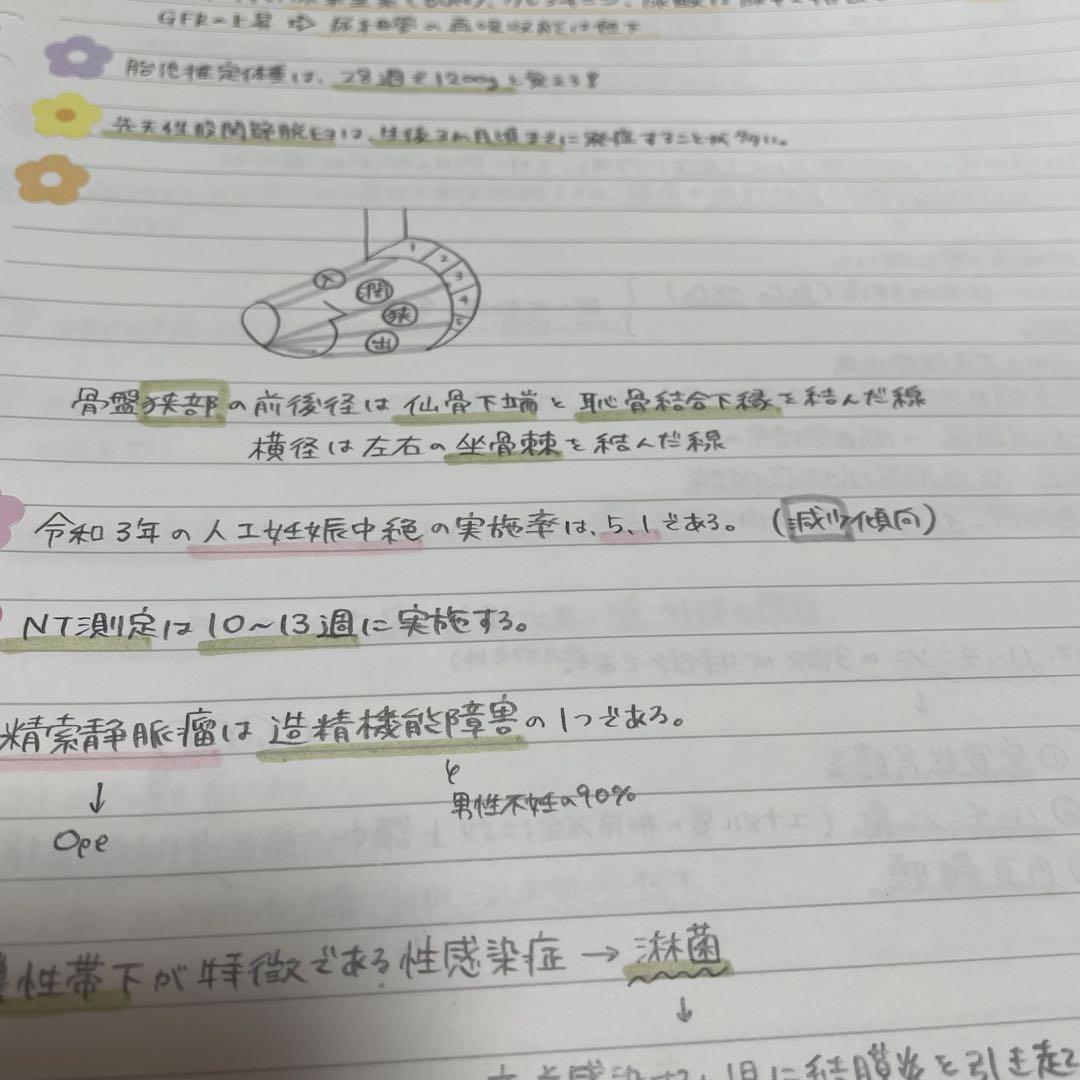 GFRの上昇 ⇨ 尿細管の再吸収能は低下
胎児推定体重は、28週で1200gと覚える!
先天性股関節脱臼は、生後3ヵ月頃までに発症することが多い。
1
2
3
4
5
入
闊
狭
出
骨盤狭部の前後径は仙骨下端と恥骨結合下縁を結んだ線
横径は左右の坐骨棘を結んだ線
令和3年の人工妊娠中絶の実施率は、5.1である。(減少傾向)
NT測定は10〜13週に実施する。
精索静脈瘤は造精機能障害の1つである。
↓
Ope
男性不妊の90%
性帯下が特徴である性感染症→淋菌
↓
感染すると、児に結膜炎を引き起こ